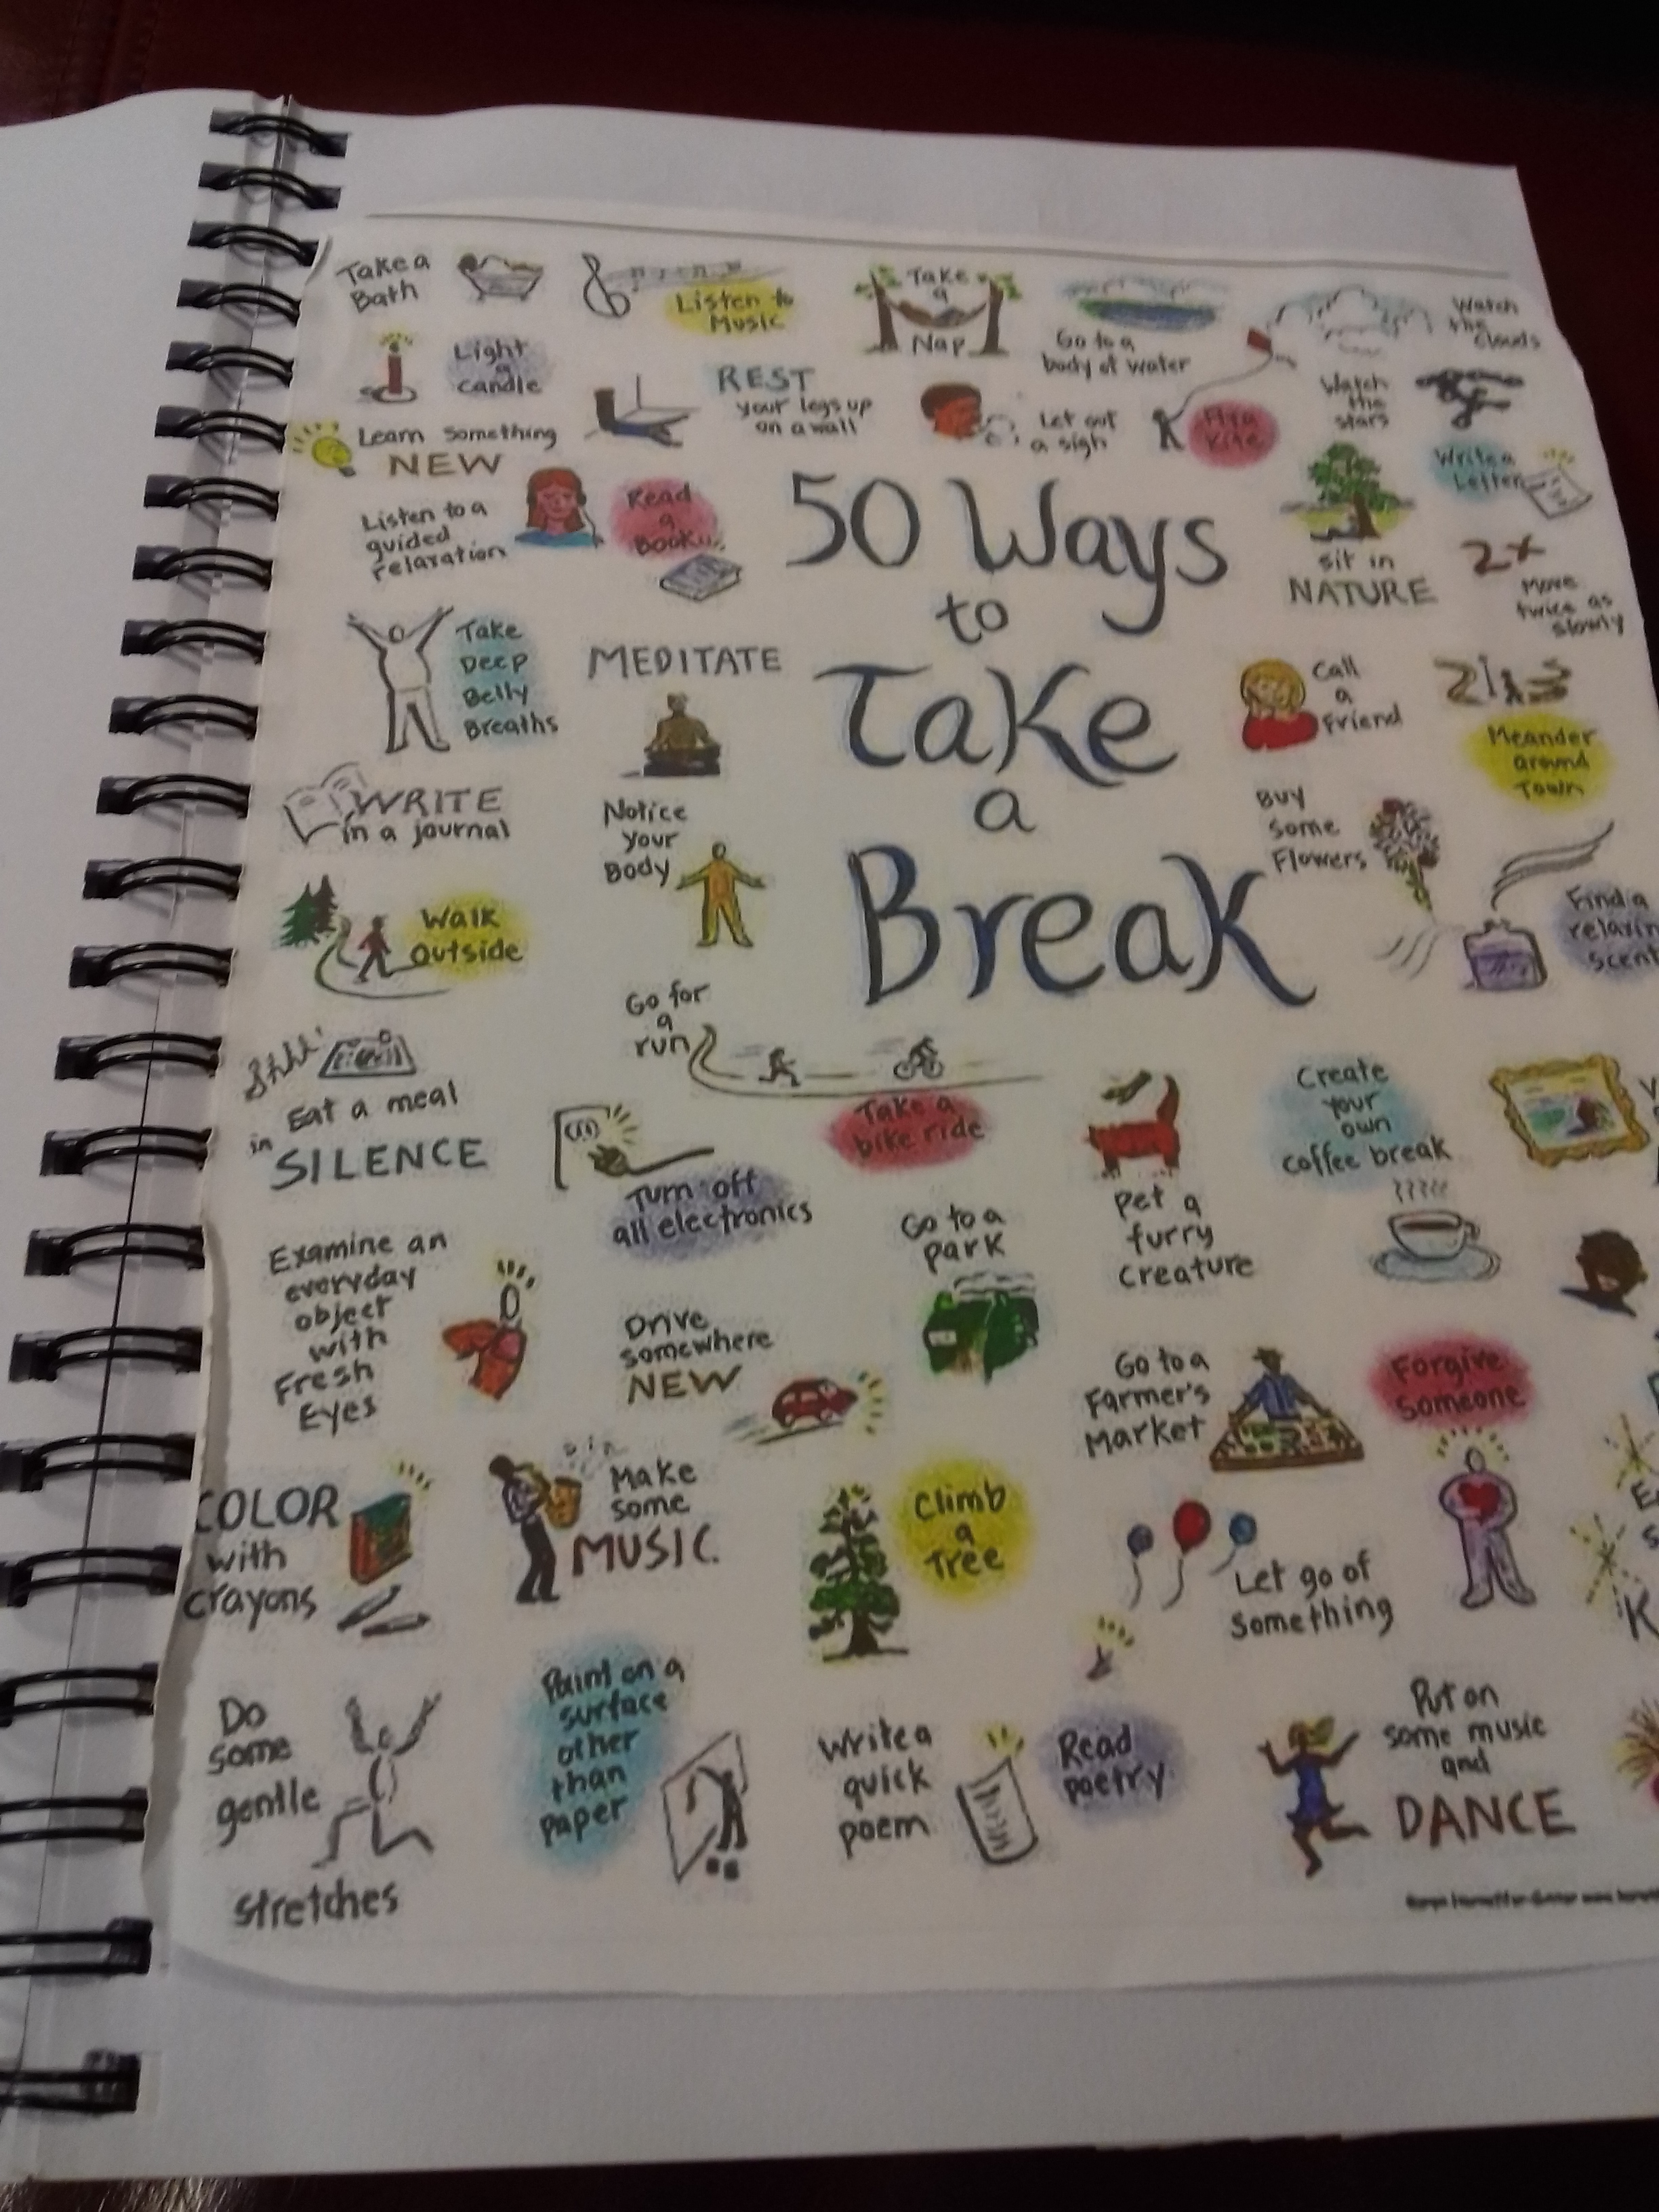 Take a
Bath
Listen to
Music
Take
a
Nap
Go to a
body of water
Watch
the
clouds
Light
a
candle
REST
your legs up
on a wall
Let out
a sigh
Fly a
Kite
Watch
the
stars
Learn something
NEW
Listen to a
guided
relaxation
Read
a
Book
50 Ways
to
Take
a
Break
sit in
NATURE
Write a
Letter
2x
Move
twice as
slowly
Take
Deep
Belly
Breaths
MEDITATE
Call
a
friend
Meander
around
Town
WRITE
in a journal
Notice
your
Body
Buy
some
Flowers
Find a
relaxin
scent
Walk
outside
Go for
a
run
Take a
bike ride
Shhh!
Eat a meal
in SILENCE
Turn off
all electronics
Pet a
furry
creature
Create
your
own
coffee break
Examine an
everyday
object
with
Fresh
Eyes
Drive
somewhere
NEW
Go to a
park
Go to a
Farmer's
Market
Forgive
Someone
COLOR
with
crayons
Make
some
MUSIC
Climb
a
Tree
Let go of
something
Do
some
gentle
stretches
Paint on a
surface
other
than
paper
Write a
quick
poem
Read
poetry
Put on
some music
and
DANCE